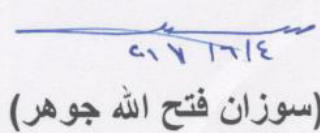 ٢٠١٧/٦/٤
(سوزان فتح الله جوهر)